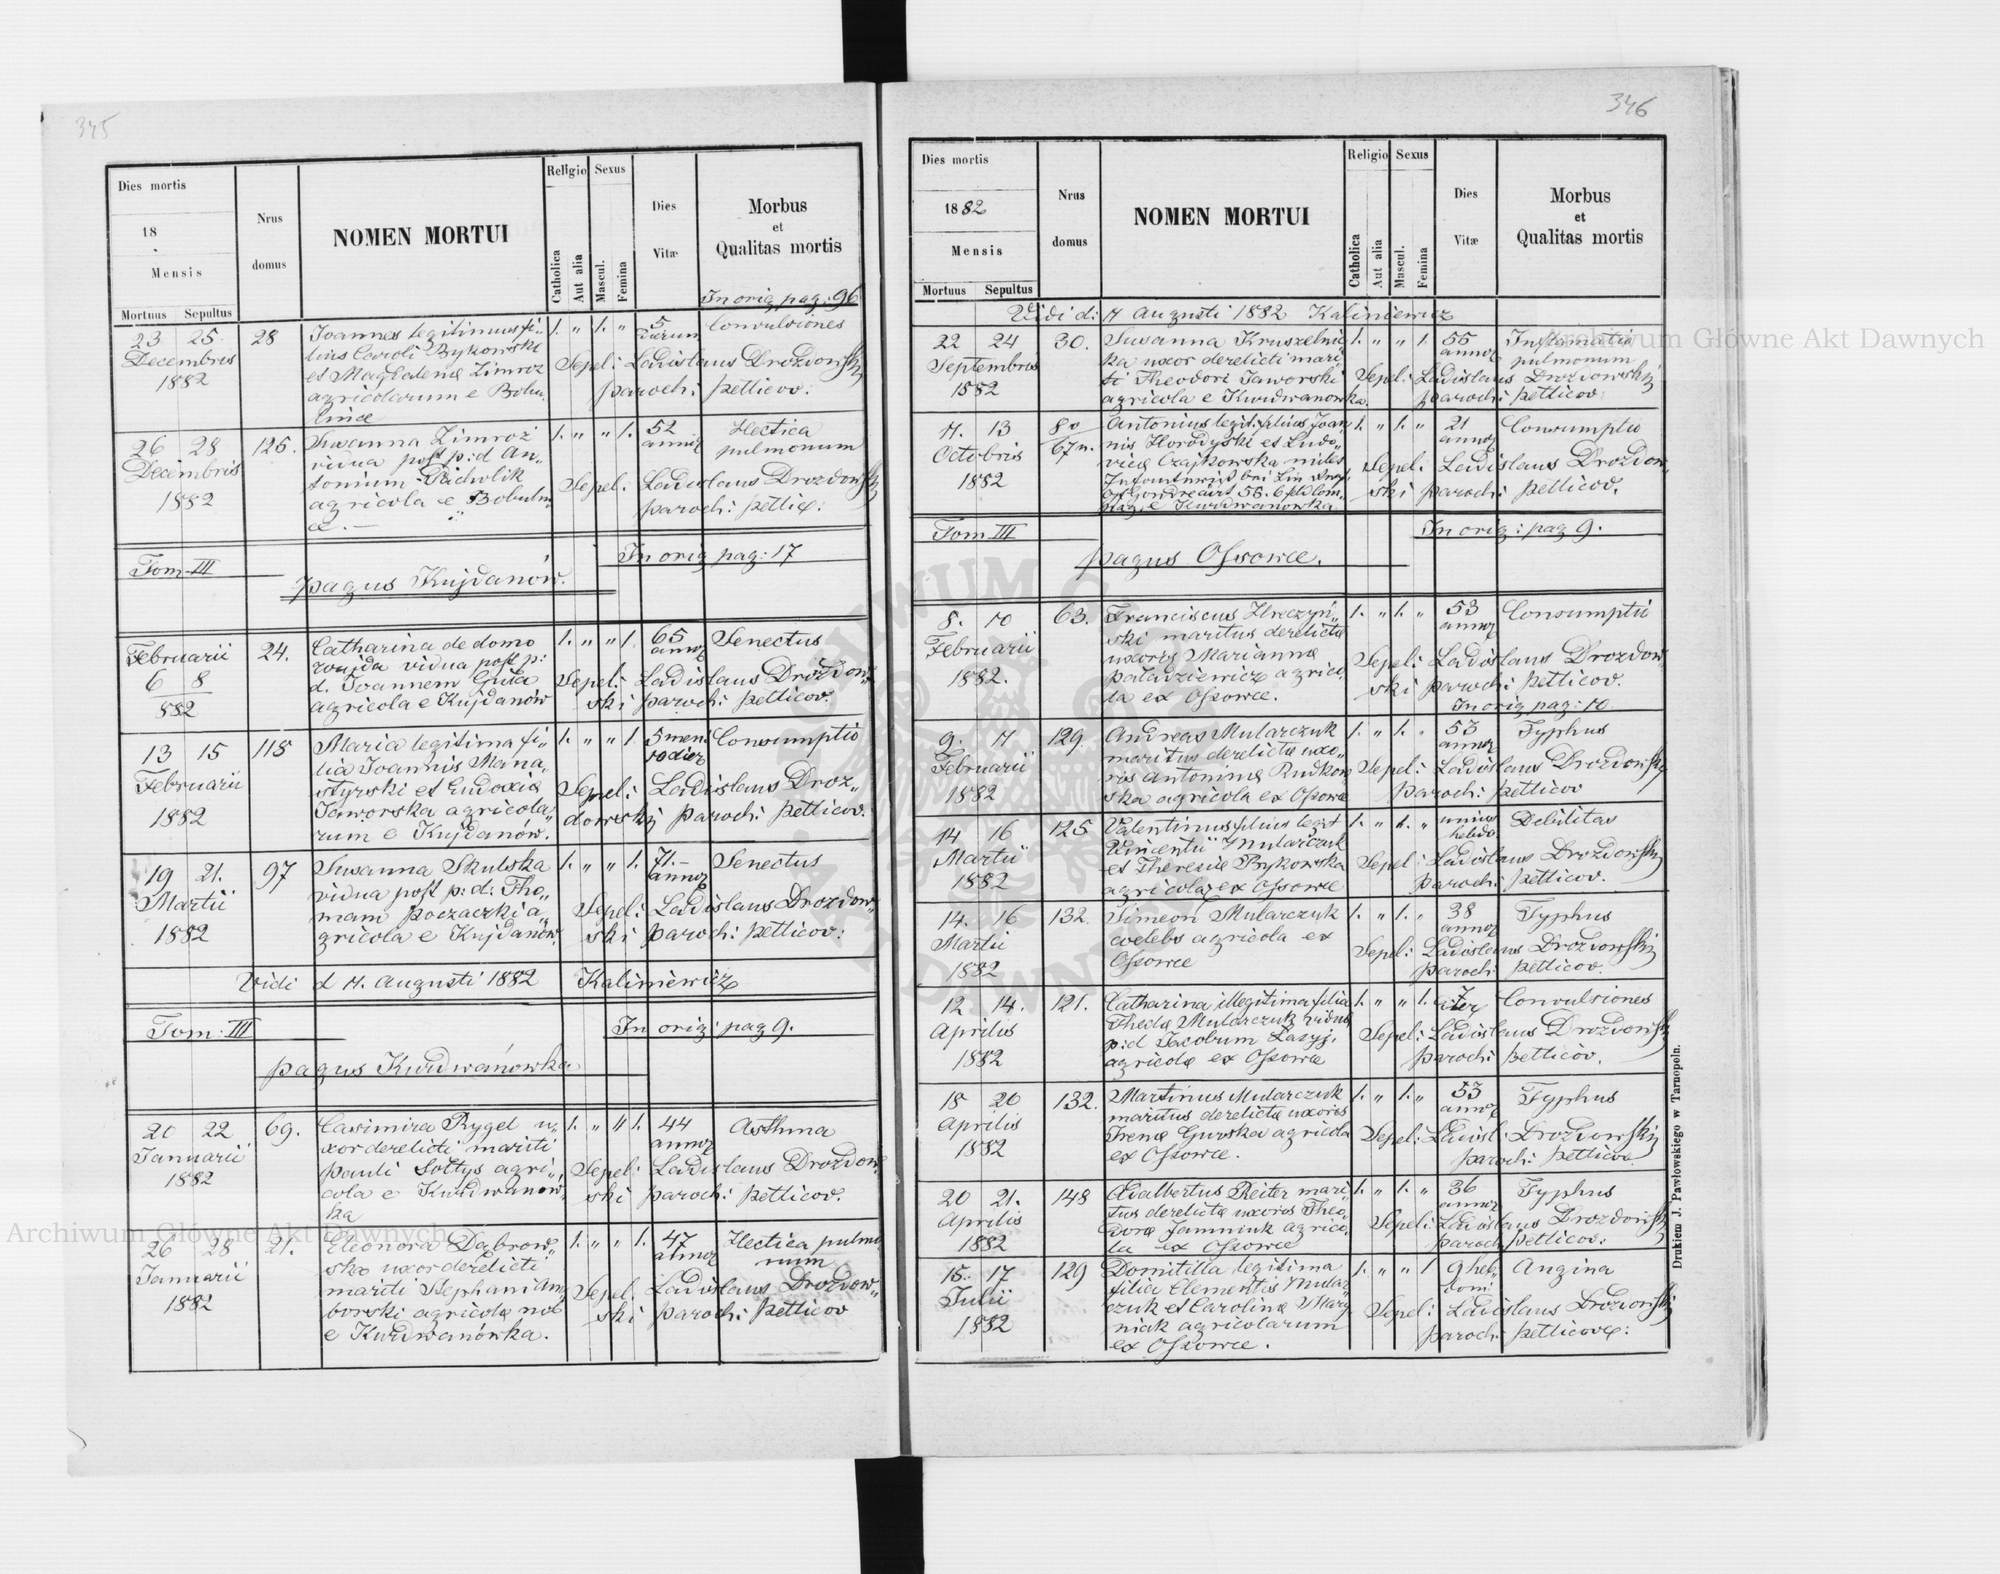 345
Dies mortis
18
Mensis
Mortuus Sepultus
Nrus
domus
NOMEN MORTUI
Religio
Catholica
Aut alia
Sexus
Mascul.
Femina
Dies
Vitæ
Morbus
et
Qualitas mortis
In orig pag: 96
23 25. 28 Joannes legitimus fi„ 1. „ 1. „ 5 Convulsiones
Decembris lius Caroli Bykowski dierum
1882 et Magdalenæ Zimroz Sepel: Ladislaus Drozdowski
agricolarum e Bobu„ paroch: petlicov.
lince
26 28 125. Susanna Zimroz 1. „ „ 1. 52 Hectica
Decembris vidua post p: d An„ annor pulmonum
1882 tonium Sepel: Ladislaus Drozdowski
agricola e Bobulin„ paroch: petlic:
ce. —
Tom III In orig pag: 17
pagus Kujdanów.
Februarii 24. Catharina de domo 1. „ „ 1. 65 Senectus
6 8 vidua post p: annor
882 d. Joannem Sepel: Ladislaus Drozdow„
agricola e Kujdanów ski paroch: petlicov.
13 15 118 Maria legitima fi„ 1. „ „ 1 5 men: Consumptio
Februarii lia Joannis Mana„ 10 dier
1882 styrski et Eudoxiæ Sepel: Ladislaus Droz„
Jaworska agricola„ dowski paroch: petlicov.
rum e Kujdanów.
19 21. 97 Susanna Skulska 1. „ „ 1. 71.– Senectus
Martii vidua post p: d: Tho„ annor
1882 mam poczaczki a„ Sepel: Ladislaus Drozdow„
gricola e Kujdanów. ski paroch: petlicov:
Vidi d 11. Augusti 1882 Kaliniewicz
Tom: III In orig: pag 9.
pagus Kurdwanówka
20 22 69. Casimira Rygel u„ 1. „ „ 1. 44 Asthma
Januarii xor derelicti mariti annor
1882 Pauli Sołtys agri„ Sepel: Ladislaus Drozdow„
cola e Kurdwanów„ ski paroch: petlicov.
ka
26 28 21. Eleonora Dąbrow„ 1. „ „ 1. 47 Hectica pulmo„
Januarii ska uxor derelicti annor num
1882 mariti Stephani Am„ Sepel: Ladislaus Drozdow„
borski agricola ski paroch: petlicov
e Kurdwanówka.
346
Dies mortis
1882
Mensis
Mortuus Sepultus
Nrus
domus
NOMEN MORTUI
Religio
Catholica
Aut alia
Sexus
Mascul.
Femina
Dies
Vitæ
Morbus
et
Qualitas mortis
Vidi d: 11 Augusti 1882 Kaliniewicz
22 24 30. Susanna Kruszelnic„ 1. „ „ 1. 55 Inflamatio
Septembris ka uxor derelicti mari„ annor pulmonum
1882 ti Theodori Jaworski Sepel: Ladislaus Drozdowski
agricola e Kurdwanowka. paroch: petlicov.
11. 13 80 Antonius legit. filius Joan„ 1. „ 1. „ 21 Consumptio
Octobris 67n. nis Horodyski et Ludo„ annor
1882 vicæ Czajkowska miles Sepel: Ladislaus Drozdow„
55. ski paroch: petlicov.
e Kurdwanowka.
Tom III In orig: pag 9.
pagus Ossowce.
8. 10 63. Franciscus Hreczyń„ 1. „ 1. „ 53 Consumptio
Februarii ski maritus derelictæ annor
1882. uxoris Mariannæ Sepel: Ladislaus Drozdow„
Paladziewicz agrico„ ski paroch: petlicov.
la ex Ossowce. In orig pag: 10.
9. 11 129 Andreas Mularczuk 1. „ 1. „ 53 Typhus
Februarii maritus derelictæ uxo„ annor
1882 ris Antoninæ Rudkow„ Sepel: Ladislaus Drozdowski
ska agricola ex Ossowce paroch: petlicov
14 16 125 Valentinus filius legit 1. „ 1. „ unius Debilitas
Martii Vincentii Mularczuk hebdo
1882 et Theresiæ Bykowska Sepel: Ladislaus Drozdowski
agricolar ex Ossowce paroch: petlicov.
14. 16 132. Simeon Mularczuk 1. „ 1. „ 38 Typhus
Martii coelebs agricola ex annor
1882 Ossowce Sepel: Ladislaus Drozdowski
paroch: petlicov.
12 14. 121. Catharina illegitima filia 1. „ „ 1. 7 Convulsiones
Aprilis Theclæ Mularczuk vidua dier
1882 p: d Jacobum Sepel: Ladislaus Drozdowski
agricola ex Ossowce paroch: petlicov.
18 20 132. Martinus Mularczuk 1. „ 1. „ 53 Typhus
Aprilis maritus derelictæ uxoris annor
1882 Irenæ Gurska agricola Sepel: Ladisl: Drozdowski
ex Ossowce. paroch: petlicov.
20 21. 148 Adalbertus Reiter mari„ 1. „ 1. „ 36 Typhus
Aprilis tus derelictæ uxoris Theo„ annor
1882 doræ Jamniuk agrico„ Sepel: Ladislaus Drozdowski
la ex Ossowce paroch: petlicov:
15. 17 129 Domitilla legitima 1. „ „ 1 9 heb„ Angina
Julii filia Clementis Mular„ dom:
1882 czuk et Carolinæ Marcy„ Sepel: Ladislaus Drozdowski
niak agricolarum paroch: petlicov:
ex Ossowce.
Drukiem J. Pawłowskiego w Tarnopoln.
Archiwum Główne Akt Dawnych
Archiwum Główne Akt Dawnych